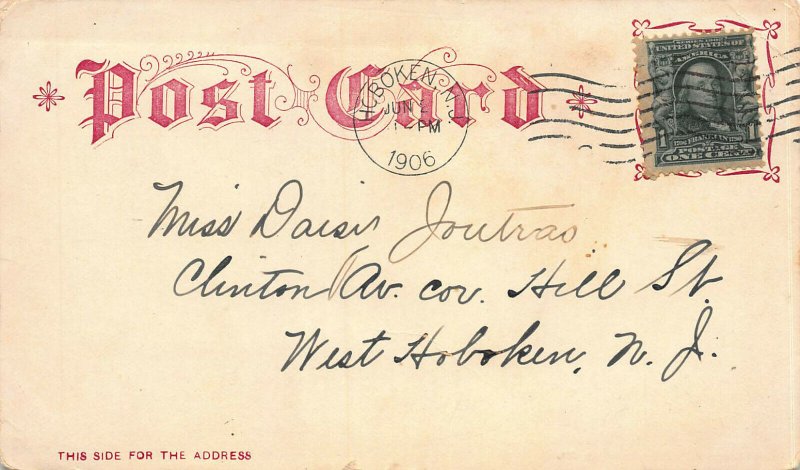 Post Card
HOBOKEN, N.J.
JUN
PM
1906
SERIES 1902
UNITED STATES OF
AMERICA
FRANKLIN
1706 1790
POSTAGE
1 ONE CENT 1
Miss Daisy Joutras
Clinton Av. cor. Hill St.
West Hoboken, N. J.
THIS SIDE FOR THE ADDRESS